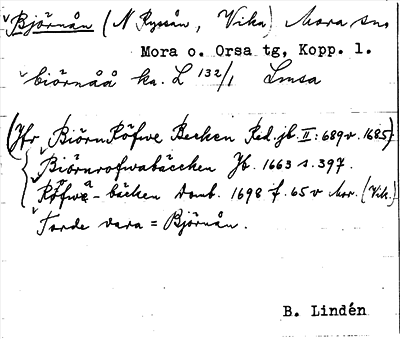 Björnån (N Ryssån, Vika) Mora sn,
Mora o. Orsa tg, Kopp. l.
biörnåå ka. L 132/1 Lmsa
(Jfr Biörn Röfwe Becken Red. jb. II: 689 v. 1685)
Biörnrofwabäccken Jb. 1663 s. 397.
Röfwa-bäcken Domb. 1698 f. 65 v Mor. (Vik.)
Torde vara = Björnån.
B. Lindén